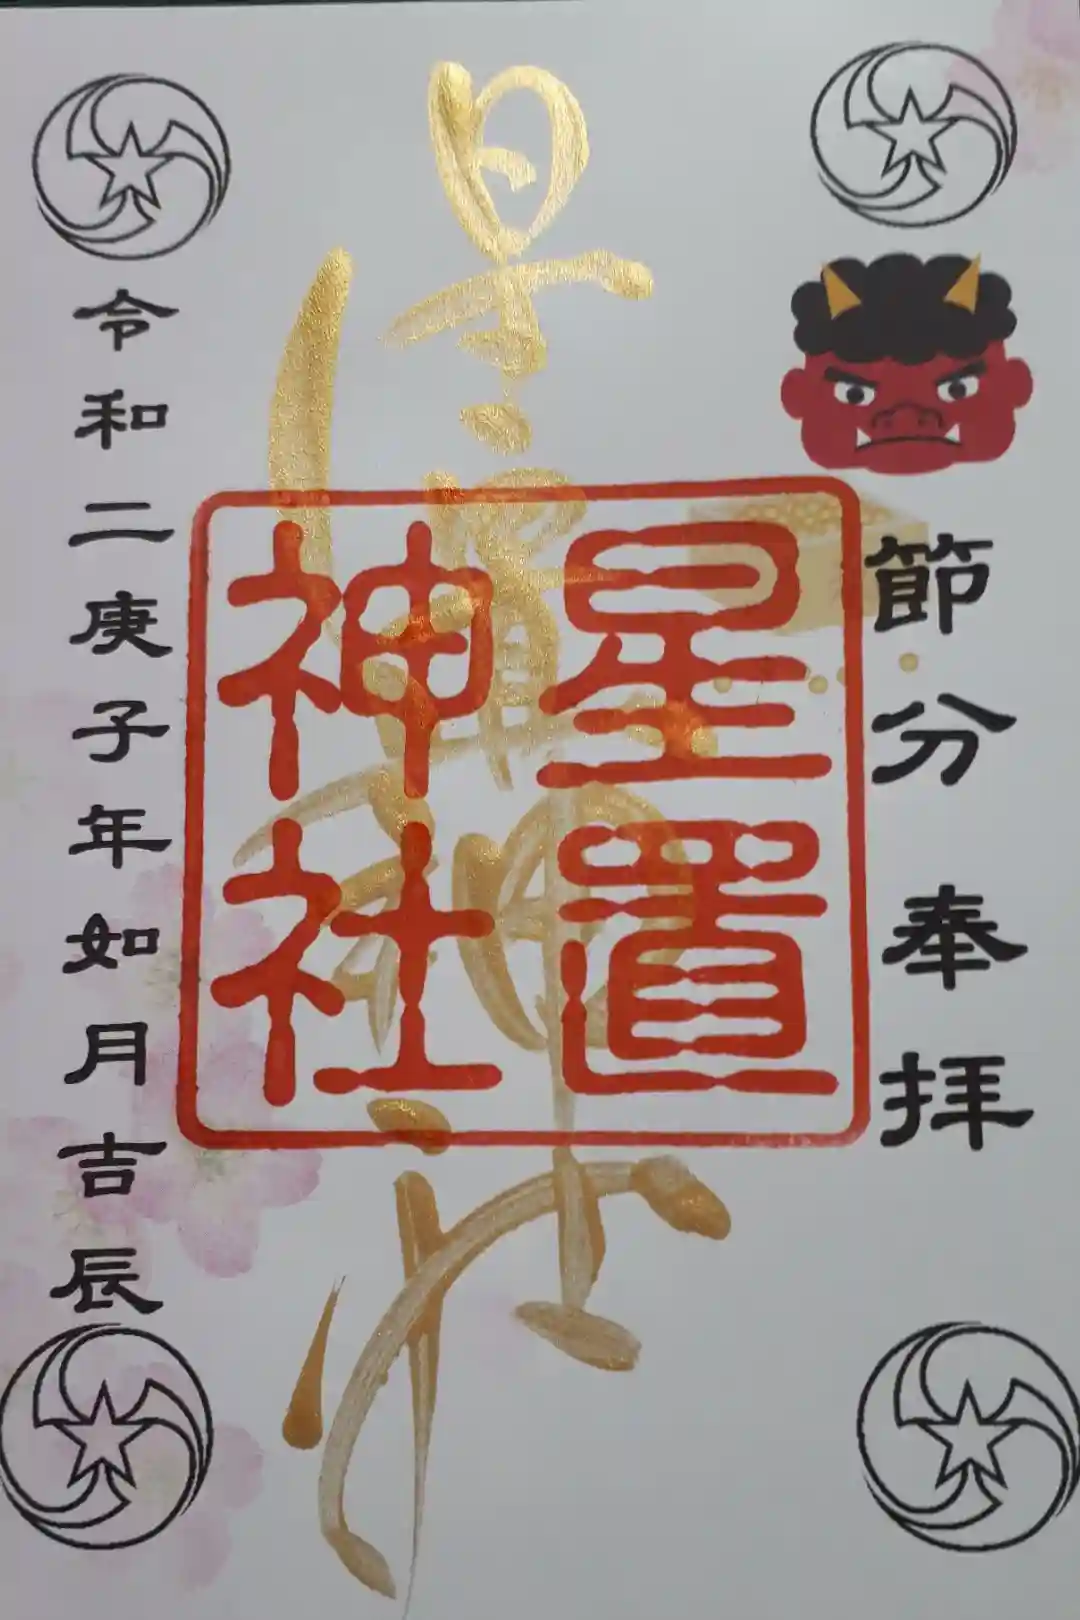 節分奉拝
星置神社
星置神社
令和二庚子年如月吉辰